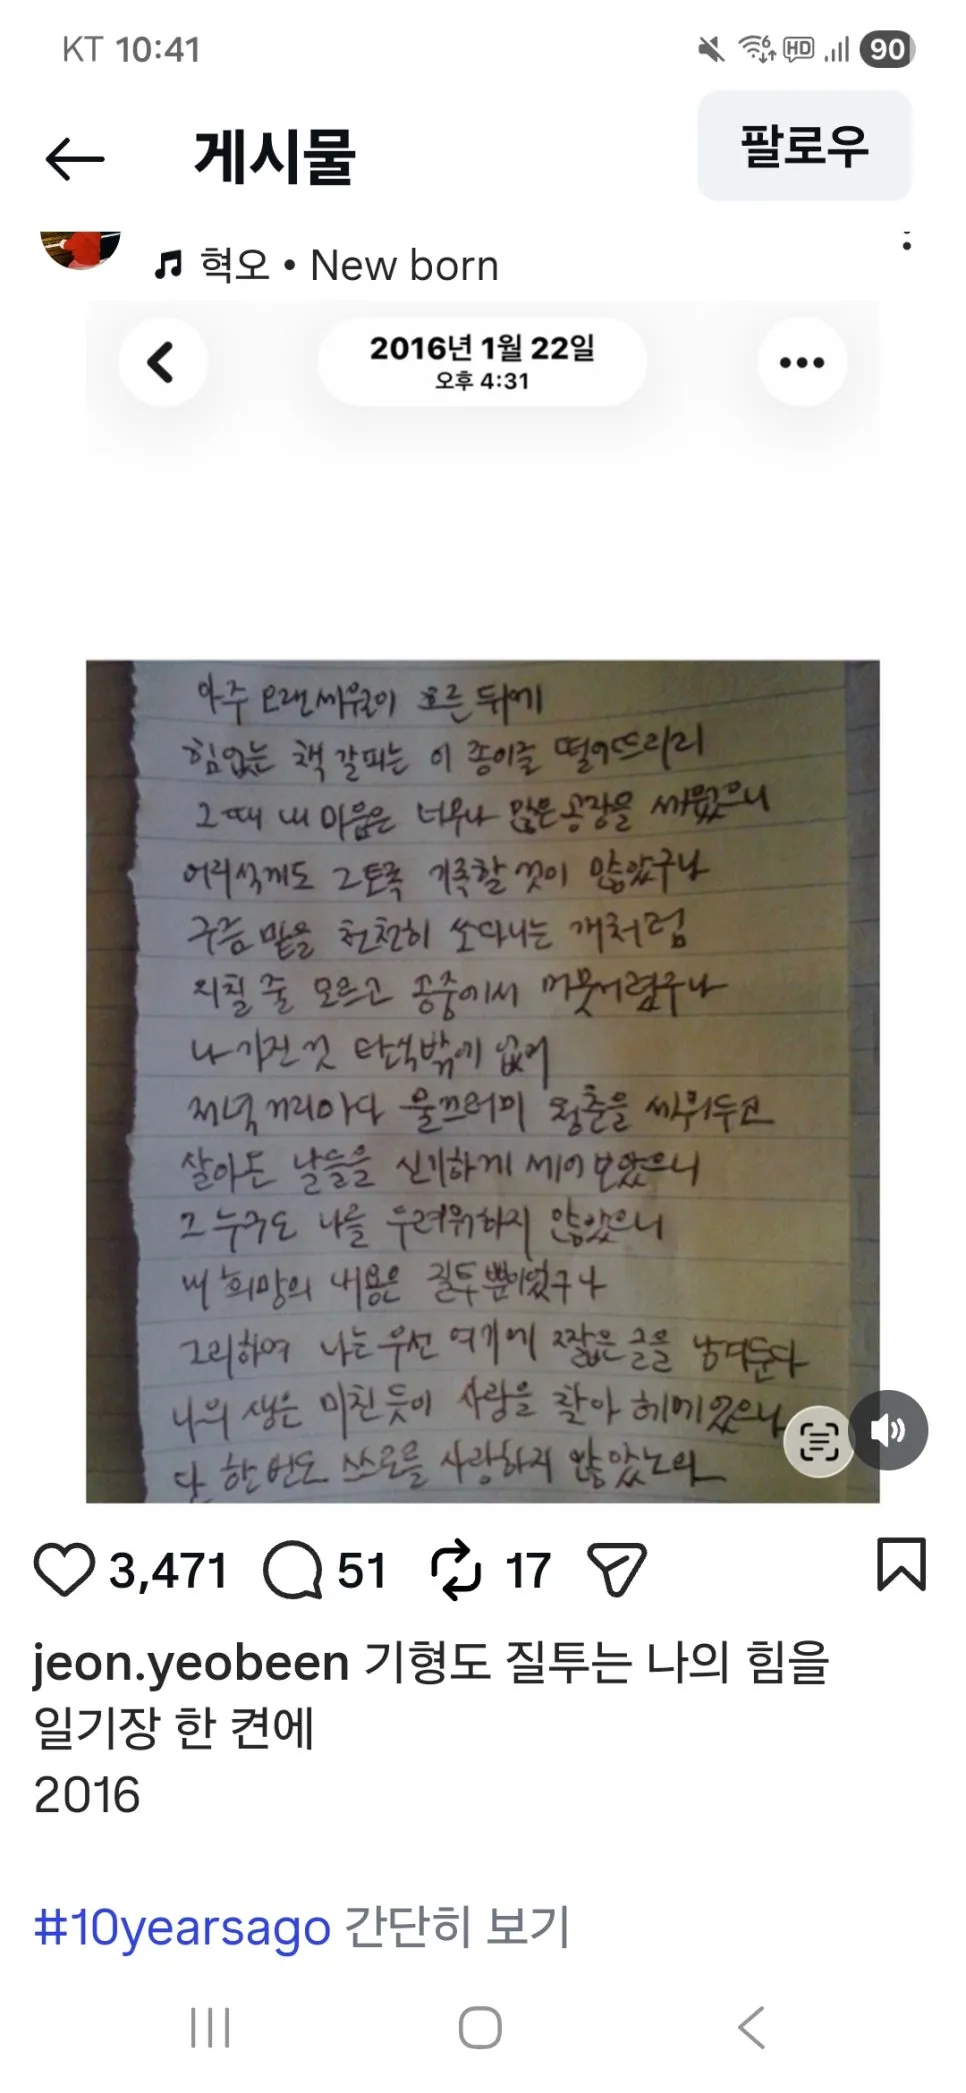 KT 10:41
HD 90
게시물
팔로우
혁오 • New born
2016년 1월 22일
오후 4:31
아주 오랜 세월이 흐른 뒤에
힘없는 책 갈피는 이 종이를 떨어뜨리리
그때 내 마음은 너무나 많은 공장을 세웠으니
어리석게도 그토록 기록할 것이 많았구나
구름 밑을 천천히 쏘다니는 개처럼
지칠 줄 모르고 공중에서 머뭇거렸구나
나 가진 것 탄식밖에 없어
저녁 거리마다 물끄러미 청춘을 세워두고
살아온 날들을 신기하게 세어 보았으니
그 누구도 나를 두려워하지 않았으니
내 희망의 내용은 질투뿐이었구나
그리하여 나는 우선 여기에 짧은 글을 남겨둔다
나의 생은 미친 듯이 사랑을 찾아 헤메었으나
단 한번도 스스로를 사랑하지 않았노라
3,471 51 17
jeon.yeobeen 기형도 질투는 나의 힘을
일기장 한 켠에
2016
#10yearsago 간단히 보기